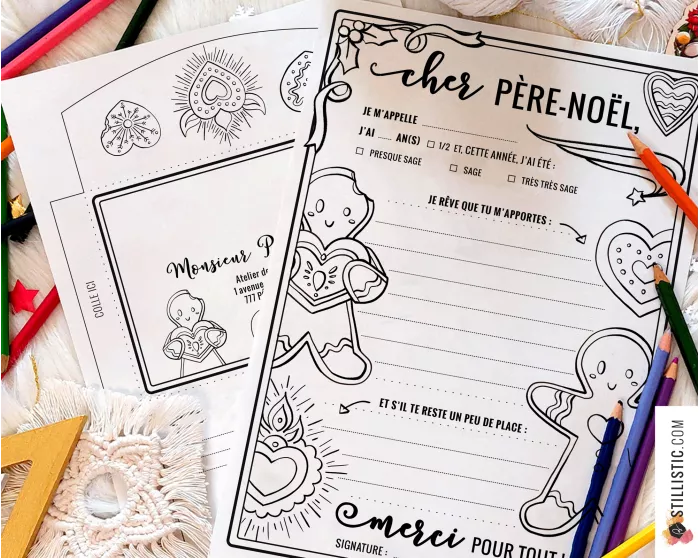 cher PÈRE-NOËL,
JE M'APPELLE
J'AI ...... AN(S) ☐ 1/2 ET, CETTE ANNÉE, J'AI ÉTÉ :
☐ PRESQUE SAGE ☐ SAGE ☐ TRÈS TRÈS SAGE
JE RÊVE QUE TU M'APPORTES :
ET S'IL TE RESTE UN PEU DE PLACE :
merci POUR TOUT !
SIGNATURE :
COLLE ICI
Monsieur P
Atelier de
1 avenue
777 P
STILLISTIC.COM